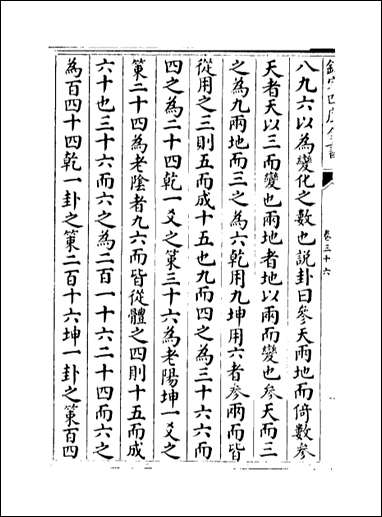 欽定四庫全書
卷三十六
八九六以為變化之數也說卦曰參天兩地而倚數參
天者天以三而變也兩地者地以兩而變也參天而三
之為九兩地而三之為六乾用九坤用六者參兩而皆
從用之三則五而成十五也九而四之為三十六六而
四之為二十四乾一爻之策三十六為老陽坤一爻之
策二十四為老陰者九六而皆從體之四則十五而成
六十也三十六而六之為二百一十六二十四而六之
為百四十四乾一卦之策二百十六坤一卦之策百四